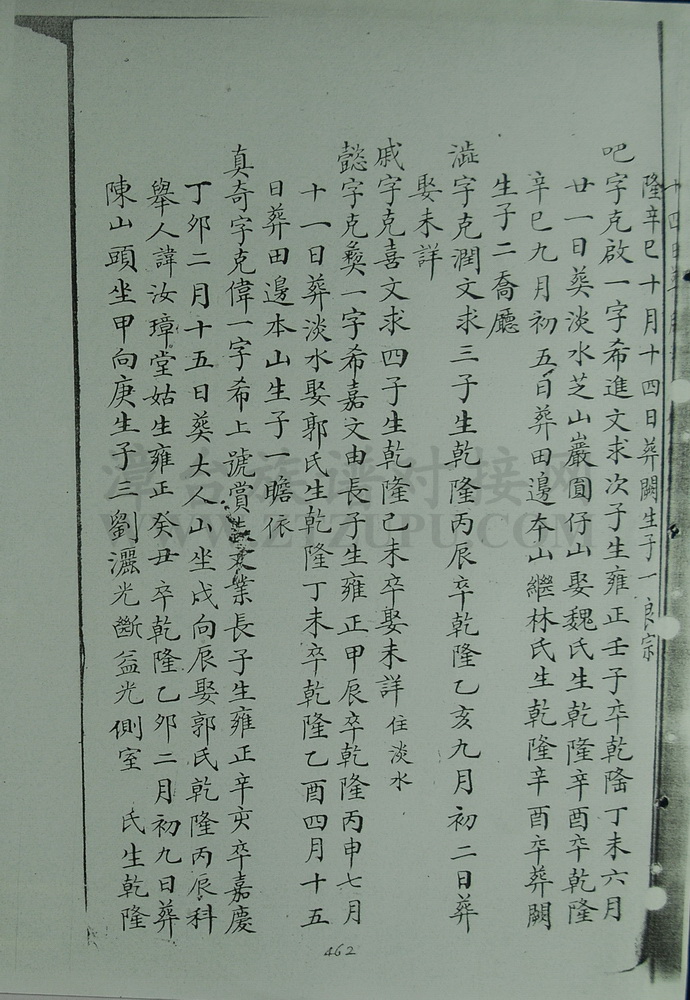 隆辛巳十月十四日葬闕生子一良宗
吧字克啟一字希進文求次子生雍正壬子卒乾隆丁未六月
廿一日葬淡水芝山巖圓仔山娶魏氏生乾隆辛酉卒乾隆
辛巳九月初五日葬田邊本山繼林氏生乾隆辛酉卒葬闕
生子二喬廳
澁字克潤文求三子生乾隆丙辰卒乾隆乙亥九月初二日葬
娶未詳
戚字克喜文求四子生乾隆己未卒娶未詳 住淡水
懿字克彝一字希嘉文由長子生雍正甲辰卒乾隆丙申七月
十一日葬淡水娶郭氏生乾隆丁未卒乾隆乙酉四月十五
日葬田邊本山生子一瞻依
真奇字克偉一字希上號賞文業長子生雍正辛亥卒嘉慶
丁卯二月十五日葬大人山坐戌向辰娶郭氏乾隆丙辰科
舉人諱汝璋堂姑生雍正癸丑卒乾隆乙卯二月初九日葬
陳山頭坐甲向庚生子三劉灑光斷益光側室 氏生乾隆
462
WWW.ZTZUPU.COM